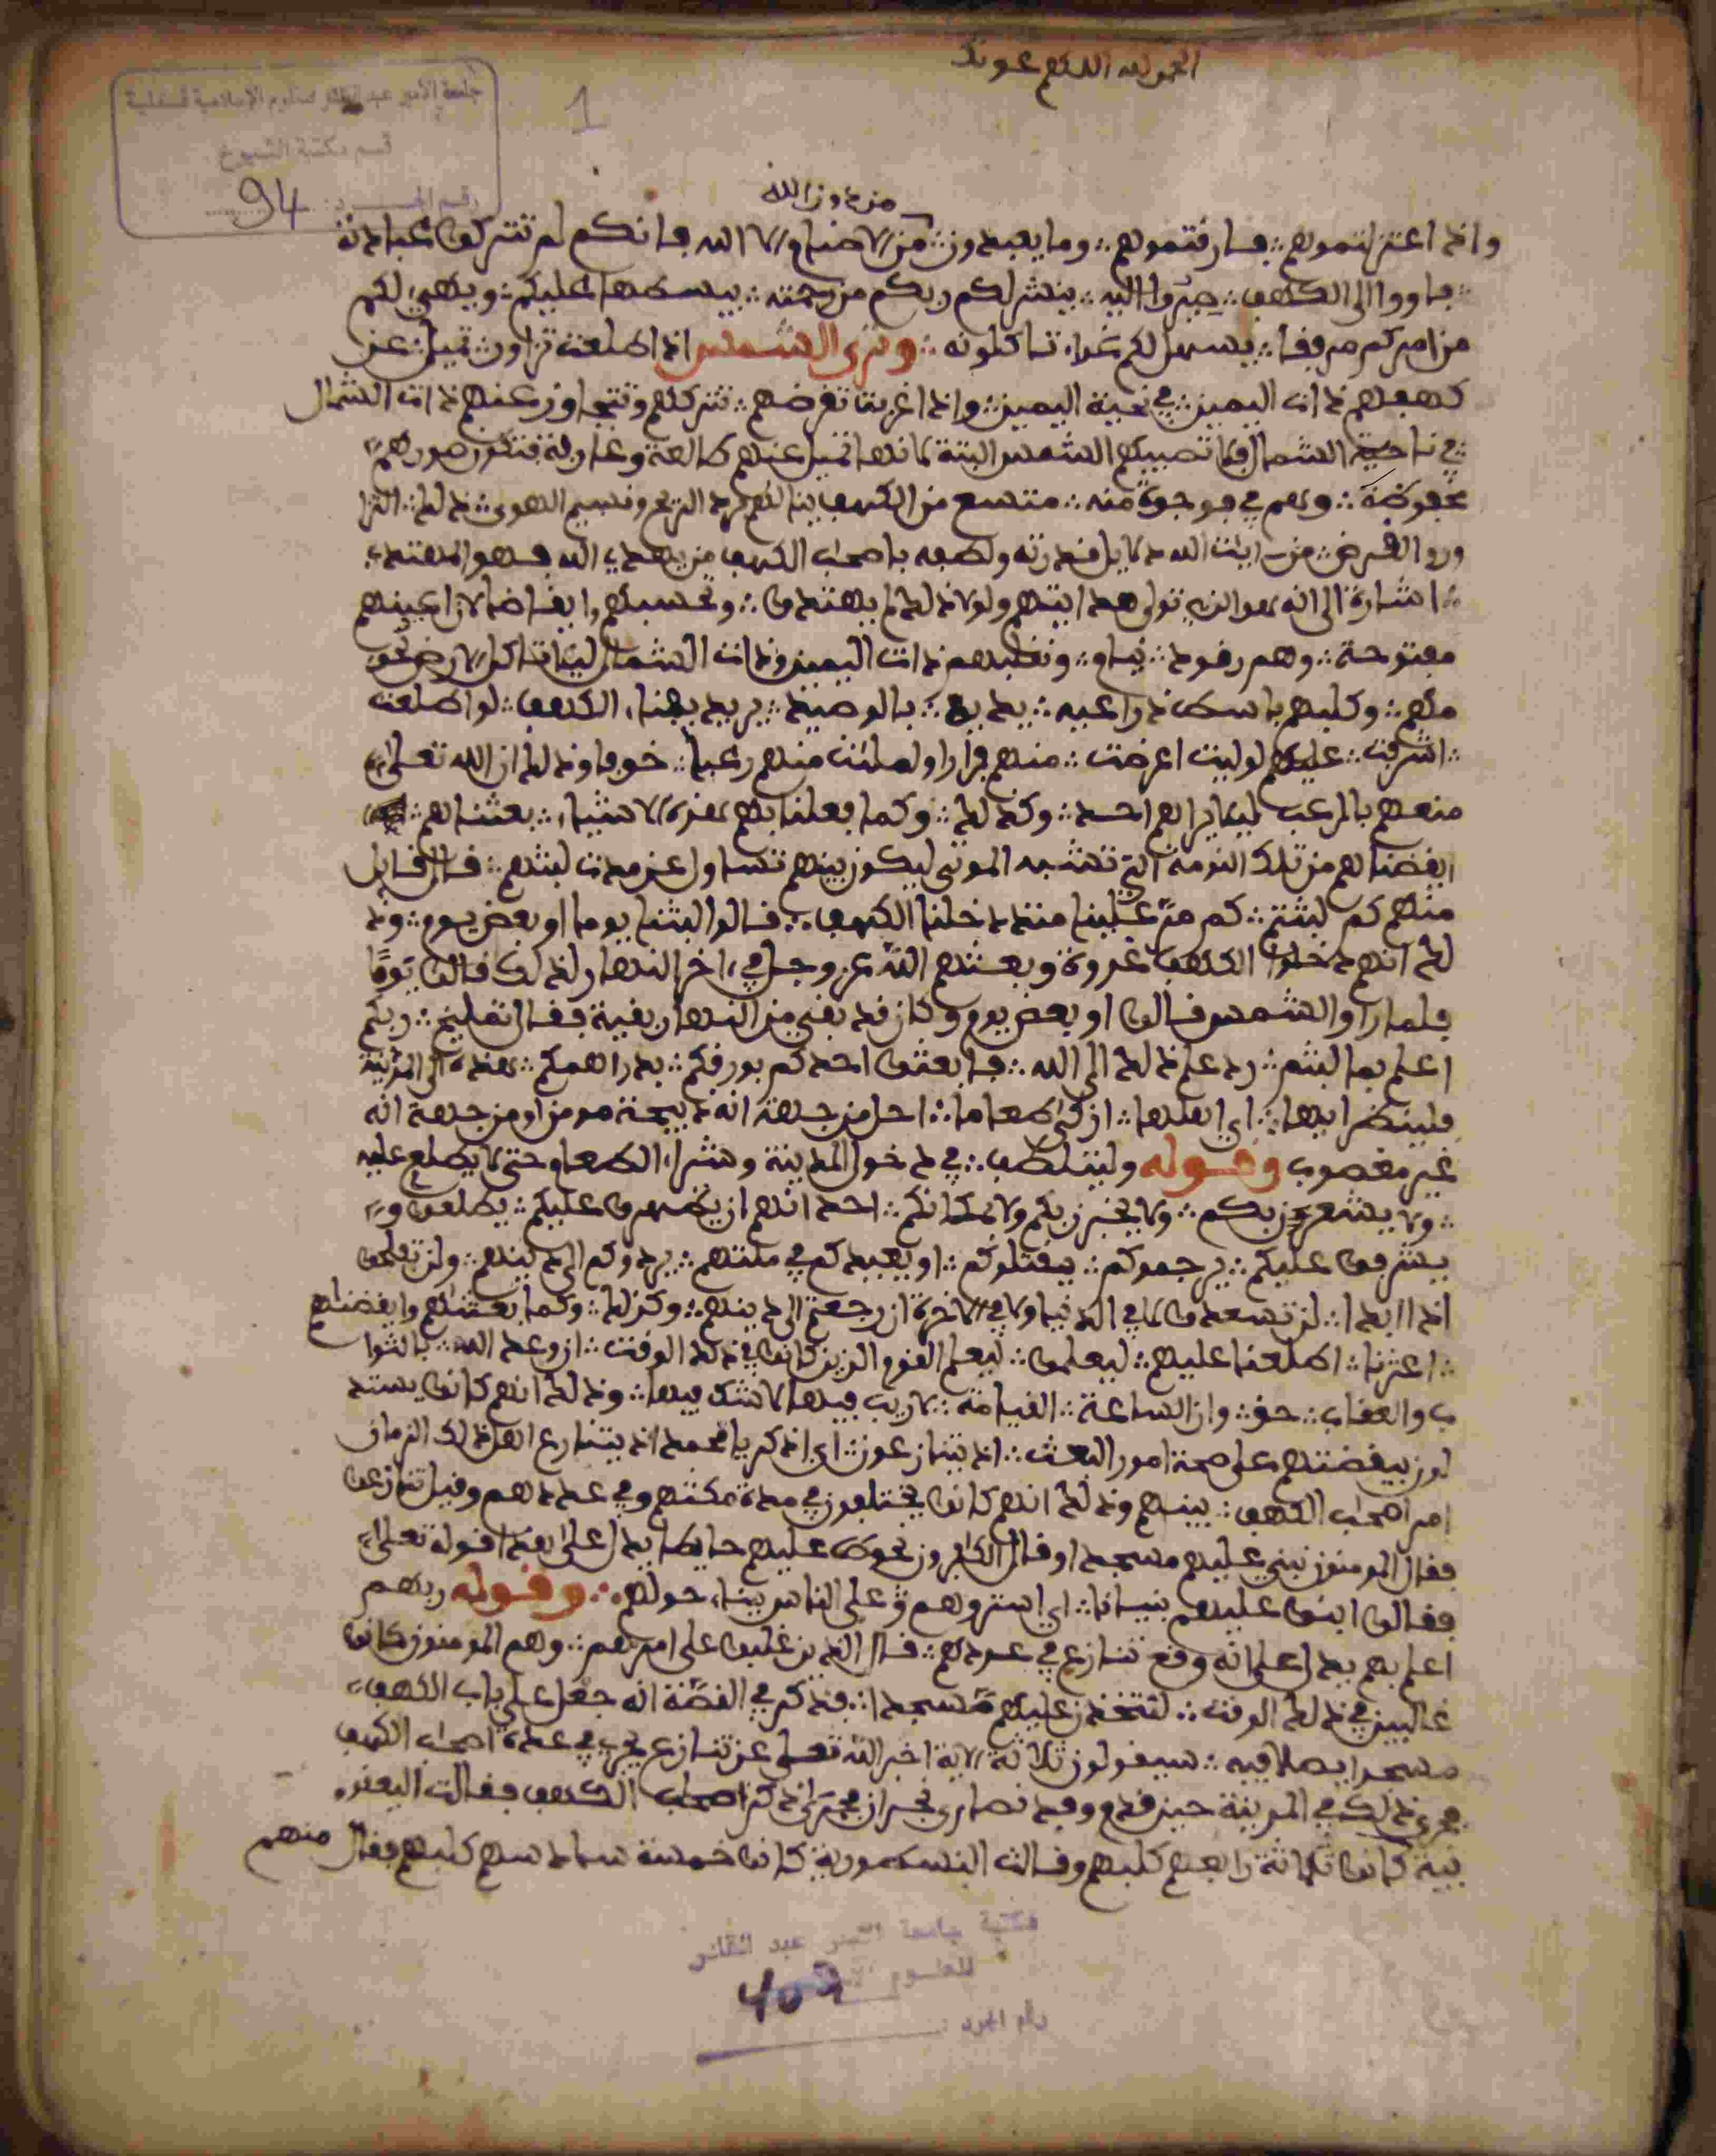 الحمد لله اللهم عونك
جامعة الأمير عبد القادر للعلوم الإسلامية قسنطينة
قسم مكتبة الشيوخ
رقم الجرد: 94
1
من دون الله
واذ اعتزلتموهم ∴ فارقتموهم ∴ وما يعبدون ∴ من الاصنام الا الله فانكم لم تتركوا عبادته
∴ فاووا الى الكهف ∴ صيروا اليه ∴ ينشر لكم ربكم من رحمته ∴ يبسطها عليكم ∴ ويهيئ لكم
من امركم مرفقا ∴ يسهل لكم غداء تاكلونه ∴ وترى الشمس اذا طلعت تزاور ∴ تميل ∴ عن
كهفهم ذات اليمين ∴ في نحية اليمين ∴ واذا غربت تقرضهم ∴ تتركهم وتتجاوز عنهم ذات الشمال
∴ في ناحية الشمال فلا تصيبهم الشمس البتة لانها تميل عنهم طالعة وغاربة فتكون صورهم
محفوظة ∴ وهم في فجوة منه ∴ متسع من الكهف ينالهم برد الريح ونسيم الهوى ∴ ذلك ∴ التزا
ور والقرض ∴ من ايات الله دلايل قدرته ولطفه باصحاب الكهف من يهد الله فهو المهتد
∴ اشارة الى انه هو الذي تولى هدايتهم ولولا ذلك لم يهتدوا ∴ وتحسبهم ايقاضا لان اعينهم
مفتوحة ∴ وهم رقود ∴ نيام ∴ ونقلبهم ذات اليمين وذات الشمال ليلا تاكل الارض لحو
مهم ∴ وكلبهم باسط ذراعيه ∴ يديه ∴ بالوصيد ∴ يريد بفناء الكهف ∴ لو اطلعت
∴ اشرفت ∴ عليهم لوليت اعرضت ∴ منهم فرارا ولملئت منهم رعبا ∴ خوفا وذلك ان الله تعلى
منعهم بالرعب ليلا يراهم احد ∴ وكذلك ∴ وكما فعلنا بهم هذه الاشياء ∴ بعثناهم ∴
ايقضناهم من تلك النومة التي تشبه الموتى ليكون بينهم تساول عن مدة لبثهم ∴ قال قايل
منهم كم لبثتم ∴ كم مر علينا منذ دخلنا الكهف ∴ قالوا لبثنا يوما او بعض يوم ∴ وذ
لك انهم دخلوا الكهف غدوة وبعثهم الله عز وجل في اخر النهار لذلك قالوا يوما
فلما راوا الشمس قالوا او بعض يوم وكان قد بقي من النهار بقية فقال تمليخ ∴ ربكم
اعلم بما لبثتم ∴ رد علم ذلك الى الله ∴ فابعثوا احدكم بورقكم ∴ بدراهمكم ∴ هذه الى المدينة
فلينظر ايها ∴ اي اهلها ∴ ازكى طعاما ∴ احل من جهة انه ذبيحة مومن او من جهة انه
غير مغصوب وقوله وليتلطف ∴ في دخول المدينة وشراء الطعام حتى لا يطلع عليه
∴ ولا يشعرن بكم ∴ ولا يخبرن بكم ولا بمكانكم ∴ احدا انهم ان يظهروا عليكم ∴ يطلعوا و
يشرفوا عليكم ∴ يرجموكم ∴ يقتلوكم ∴ او يعيدوكم في ملتهم ∴ يردوكم الى دينهم ∴ ولن تفلحوا
اذا ابدا ∴ لن تسعدوا لا في الدنيا ولا في الاخرة ان رجعتم الى دينهم ∴ وكذلك ∴ وكما بعثناهم وايقضناهم
∴ اعثرنا ∴ اطلعنا عليهم ∴ ليعلموا ∴ ليعلم القوم الذين كانوا في ذلك الوقت ∴ ان وعد الله ∴ بالثوا
ب والعقاب ∴ حق ∴ وان الساعة ∴ القيامة ∴ لا ريب فيها لا شك فيها ∴ وذلك انهم كانوا يستد
لون بيقضتهم على صحة امور البعث ∴ اذ يتنازعون ∴ اي اذكر يا محمد اذ يتنازع اهل ذلك الزمان
امر اصحاب الكهف ∴ بينهم وذلك انهم كانوا يختلفون في مدة مكثهم وفي عددهم وقيل تنازعوا
فقال المومنون نبني عليهم مسجدا وقال الكافرون نحوط عليهم حايطا يدل على هذا قوله تعلى
فقالوا ابنوا عليهم بنيانا ∴ اي استروهم على الناس ببناء حولهم ∴ وقوله ربهم
اعلم بهم يدل على انه وقع تنازع في عددهم ∴ قال الذين غلبوا على امرهم ∴ وهم المومنون كانوا
غالبين في ذلك الوقت ∴ لنتخذن عليهم مسجدا ∴ فذكر في القصة انه جعل على باب الكهف
مسجدا يصلا فيه ∴ سيقولون ثلاثة الاية اخبر الله تعلى عن تنازع يجري في عدة اصحاب الكهف
فجرى ذلك في المدينة حين قدم وفد نصارى نجران فجرى ذكر اصحاب الكهف فقالت اليعقو
بية كانوا ثلاثة رابعهم كلبهم وقالت النسطورية كانوا خمسة سادسهم كلبهم فقال منهم
مكتبة جامعة الأمير عبد القادر
للعلوم
403
رقم الجرد :